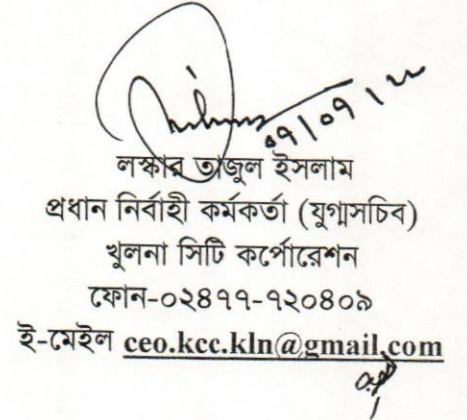 ০৭/০৭/২২
লস্কার তাজুল ইসলাম
প্রধান নির্বাহী কর্মকর্তা (যুগ্মসচিব)
খুলনা সিটি কর্পোরেশন
ফোন-০২৪৭৭-৭২০৪০৯
ই-মেইল ceo.kcc.kln@gmail.com